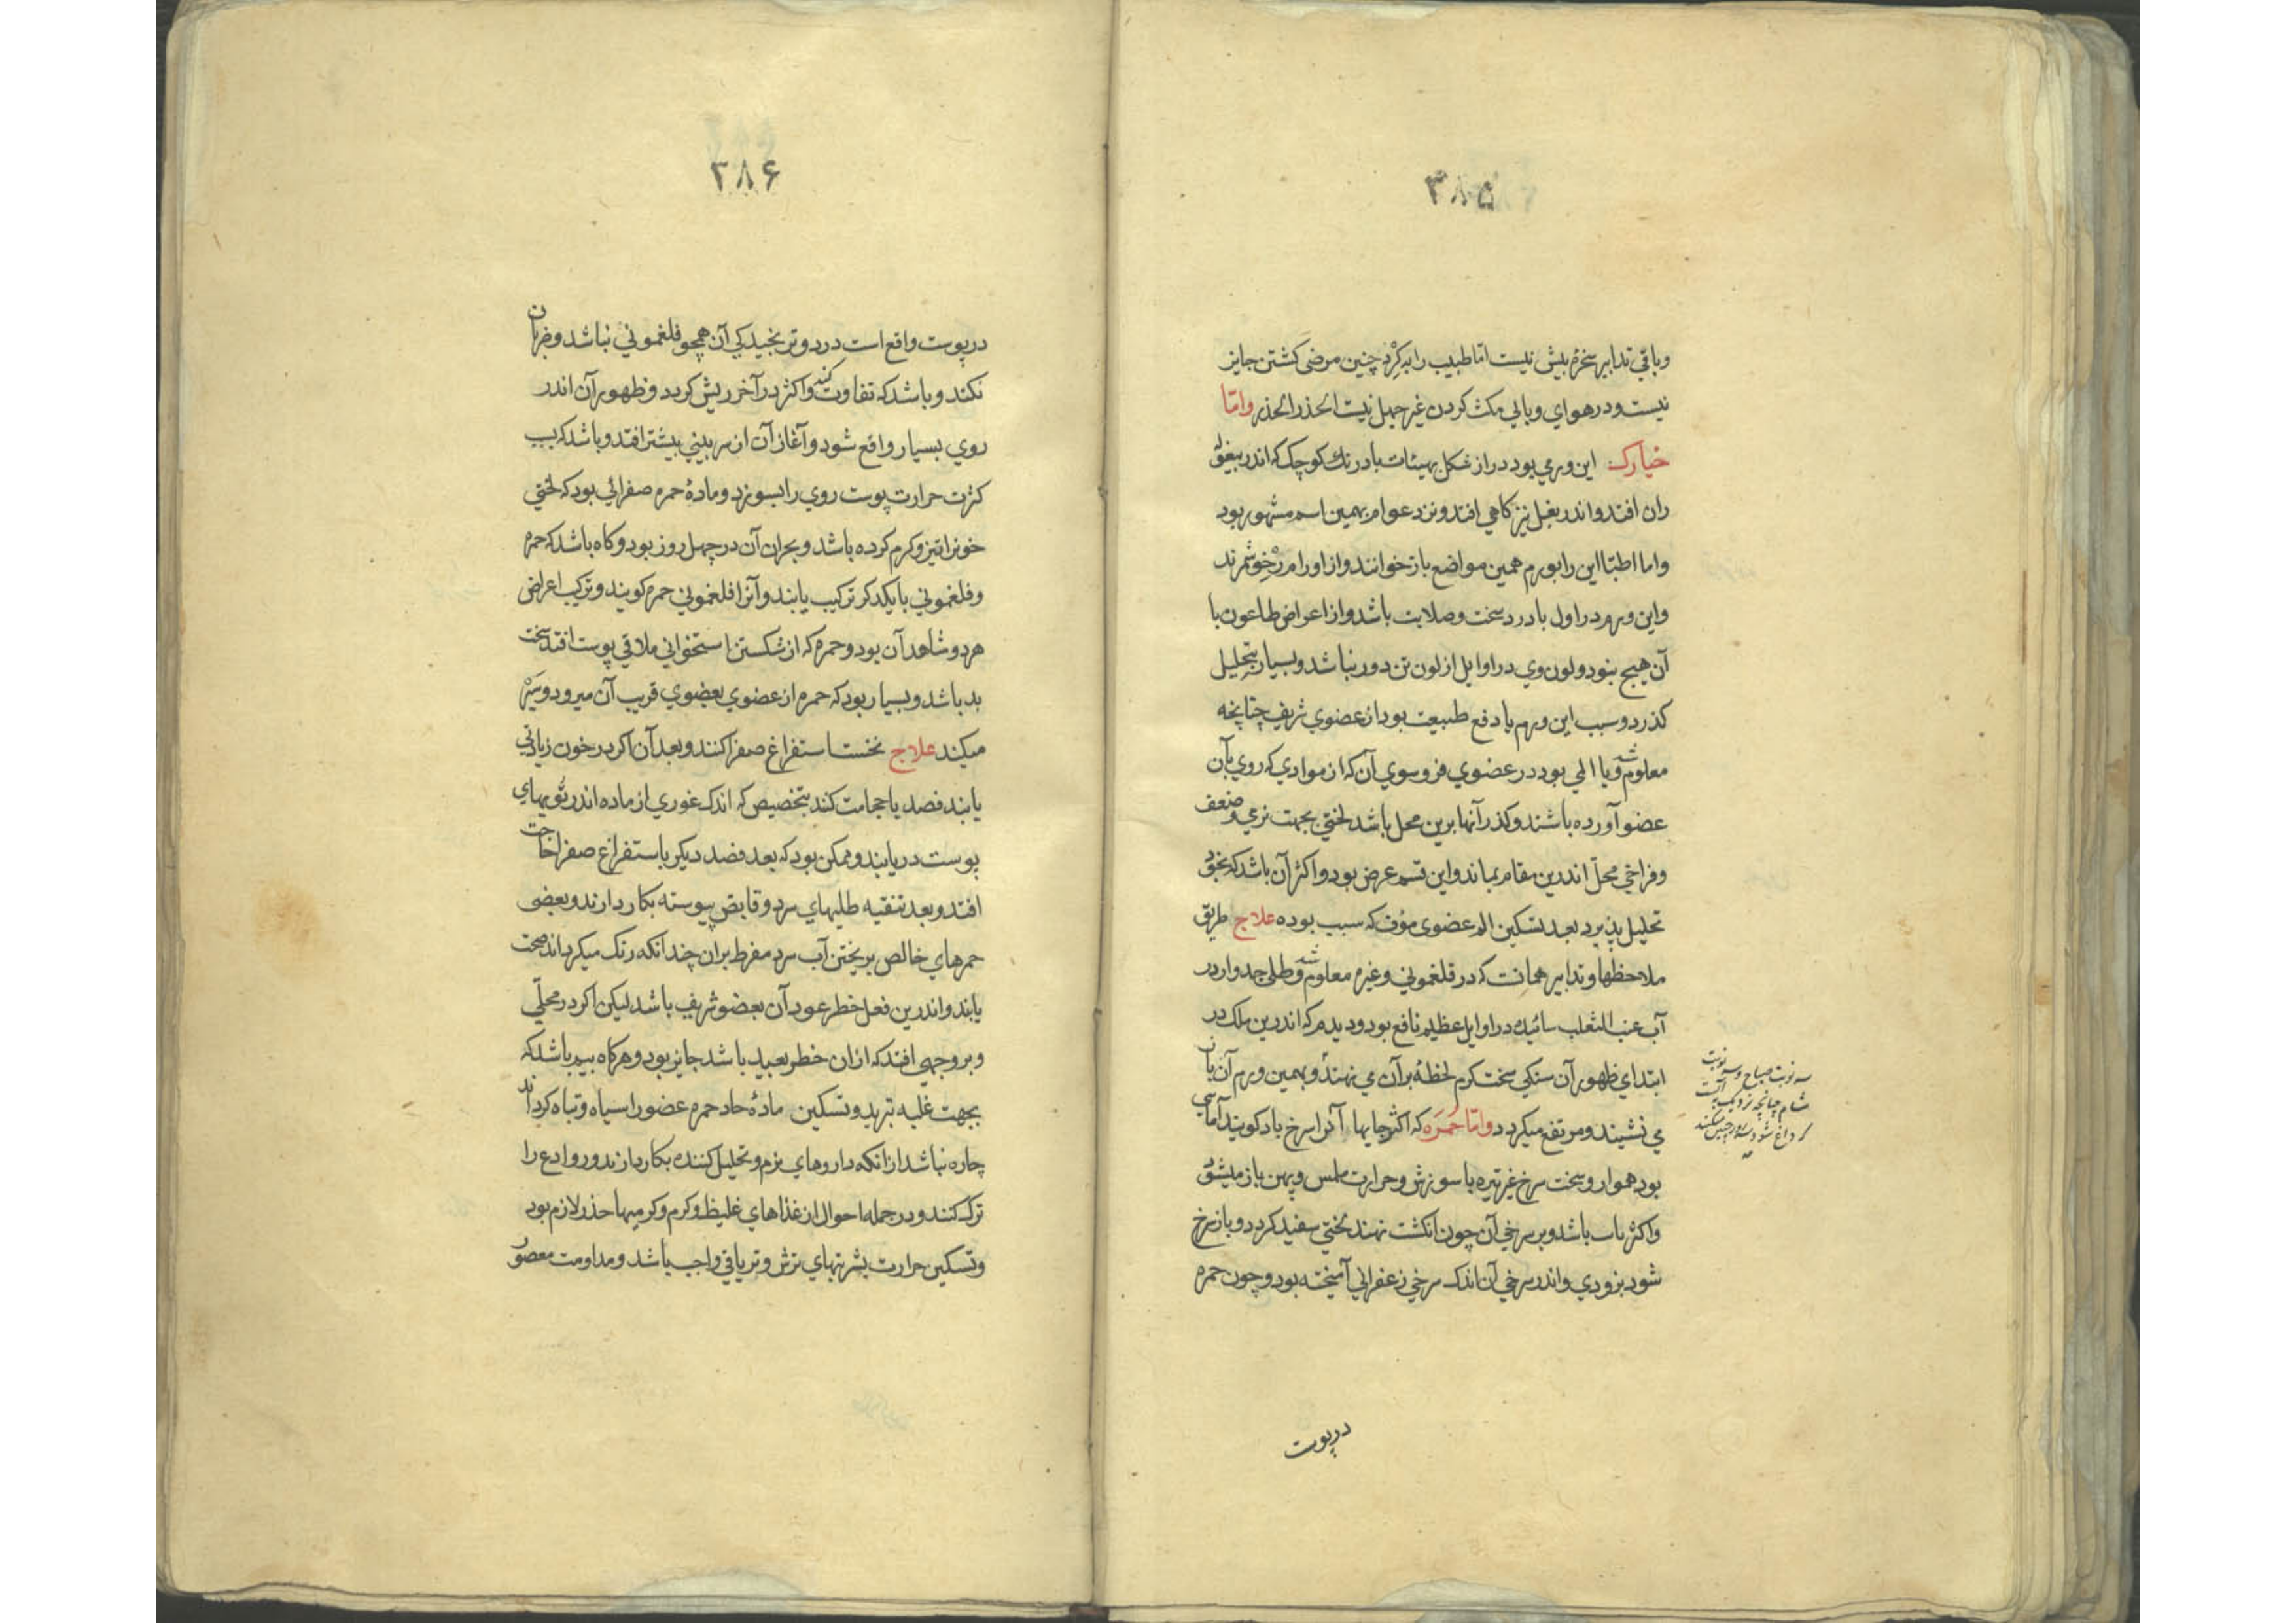 ۳۸۵
وباقي تدابير سخره بيش نيست اما طبيب را به كرد چنين مرضى كشتن جايز
نيست ودر هواي وبائي مكث كردن غير جهل نيست الحذر الحذر واما
خيارك اين ورمي بود دراز شكل بهيئات بادرنك كوچك كه اندر بيغوله
ران افتد واندر بغل نيز كاهي افتد ونزد عوام بهمين اسم مشهور بود
واما اطبا اين را بورم همين مواضع باز خوانند واز اورام رخو شمرند
واين ورم در اول با درد سخت وصلابت باشد واز اعراض طاعون با
آن هيچ نبود ولون وي در اوايل از لون تن دور نباشد وبسيار بتحليل
كذرد وسبب اين ورم يا دفع طبيعت بود از عضوي شريف چنانچه
معلوم شد ويا المي بود در عضوي فروسوي آن كه از موادي كه روي بآن
عضو آورده باشند وكذر آنها برين محل باشد لختي بجهت نرمي وضعف
وفراخي محل اندرين مقام بماند واين قسم عرض بود واكثر آن باشد كه بخود
تحليل پذيرد بعد تسكين الم عضوى مؤف كه سبب بوده علاج طريق
ملاحظها وتدابير همانست كه در فلغموني وغيره معلوم شد وطلي جدوار در
آب عنب الثعلب سائيده در اوايل عظيم نافع بود وديدم كه اندرين ملك در
ابتداي ظهور آن سنكي سخت كرم لحظهٔ بر آن مي نهند وبهمين ورم آن باز
مي نشيند ومرتفع ميكردد واما حمره كه اكثر جايها آنرا سرخ باد كويند آماسي
بود هموار وسخت سرخ غير تيره با سوزش وحرارت ملمس وپهن باز ميشود
واكثر ناب باشد وبر سرخي آن چون انكشت نهند لختي سفيد كردد وباز سرخ
شود بزودي واندر سرخي آن اندك سرخي زعفراني آميخته بود وچون حمره
سه نوبت صباح وسه نوبت
شام چنانچه نزديك است
كه داغ شود
در پوست
۳۸۶
در پوست واقع است درد وترنجيدكي آن همچو فلغموني نباشد وضربان
نكند وباشد كه تفاوت كند واكثر در آخر ريش كردد وظهور آن اندر
روي بسيار واقع شود وآغاز آن از سر بيني بيشتر افتد وباشد كه بسبب
كثرت حرارت پوست روي را بسوزد ومادهٔ حمره صفرائي بود كه لختي
خونرا تيز وكرم كرده باشد وبحران آن در چهل روز بود وكاه باشد كه حمره
وفلغموني با يكدكر تركيب يابند وآنرا فلغموني حمره كويند وتركيب اعراض
هر دو شاهد آن بود وحمره كه از شكستن استخواني ملاقي پوست افتد سخت
بد باشد وبسيار بود كه حمره از عضوي بعضوي قريب آن ميرود وسير
ميكند علاج نخست استفراغ صفرا كنند وبعد آن اكر در خون زيادتي
يابند فصد يا حجامت كنند بتخصيص كه اندك غوري از ماده اندر تويهاي
پوست دريابند وممكن بود كه بعد فصد ديكر باستفراغ صفرا حاجت
افتد وبعد تنقيه طليهاي سرد وقابض پيوسته بكار دارند وبعضى
حمرهاي خالص بريختن آب سرد مفرط بران چندانكه رنك ميكرداند صحت
يابند واندرين فعل خطر عود آن بعضو شريف باشد ليكن اكر در محلّي
وبر وجهي افتد كه ازان خطر بعيد باشد جايز بود وهركاه بيم باشد كه
بجهت غلبه تبريد وتسكين مادهٔ حاد حمره عضو را سياه وتباه كرداند
چاره نباشد ازانكه داروهاي نرم وتحليل كننده بكار دارند ورودادع را
ترك كنند ودر جمله احوال از غذاهاي غليظ وكرم وكرميها حذر لازم بود
وتسكين حرارت بشربتهاي ترش وترياقي واجب باشد ومداومت معصور